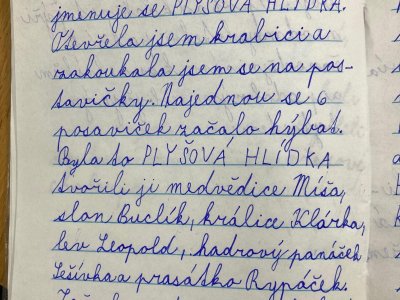 jmenuje se PLYŠOVÁ HLÍDKA.
Otevřela jsem krabici a
zakoukala jsem se na pos-
tavičky. Najednou se 6
posaviček začalo hýbat.
Byla to PLYŠOVÁ HLÍDKA
tvořili ji medvědice Míša,
slon Buclík, králice Klárka,
lev Leopold, hadrový panáček
Sešívka a prasátko Rypáček.